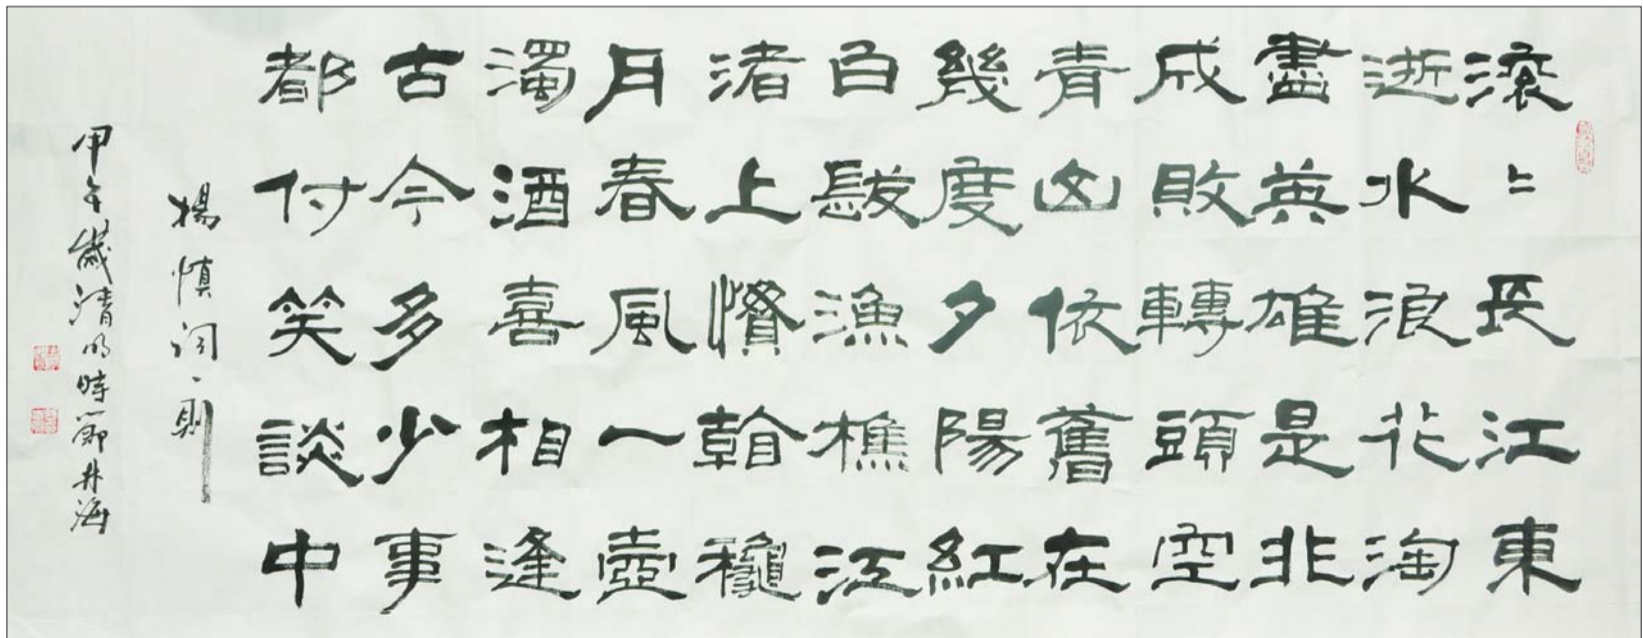 滾〻長江東
逝水浪花淘
盡英雄是非
成敗轉頭空
青山依舊在
幾度夕陽紅
白髮漁樵江
渚上慣看穐
月春風一壺
濁酒喜相逢
古今多少事
都付笑談中
楊慎詞一則
甲午歲清明時節井海